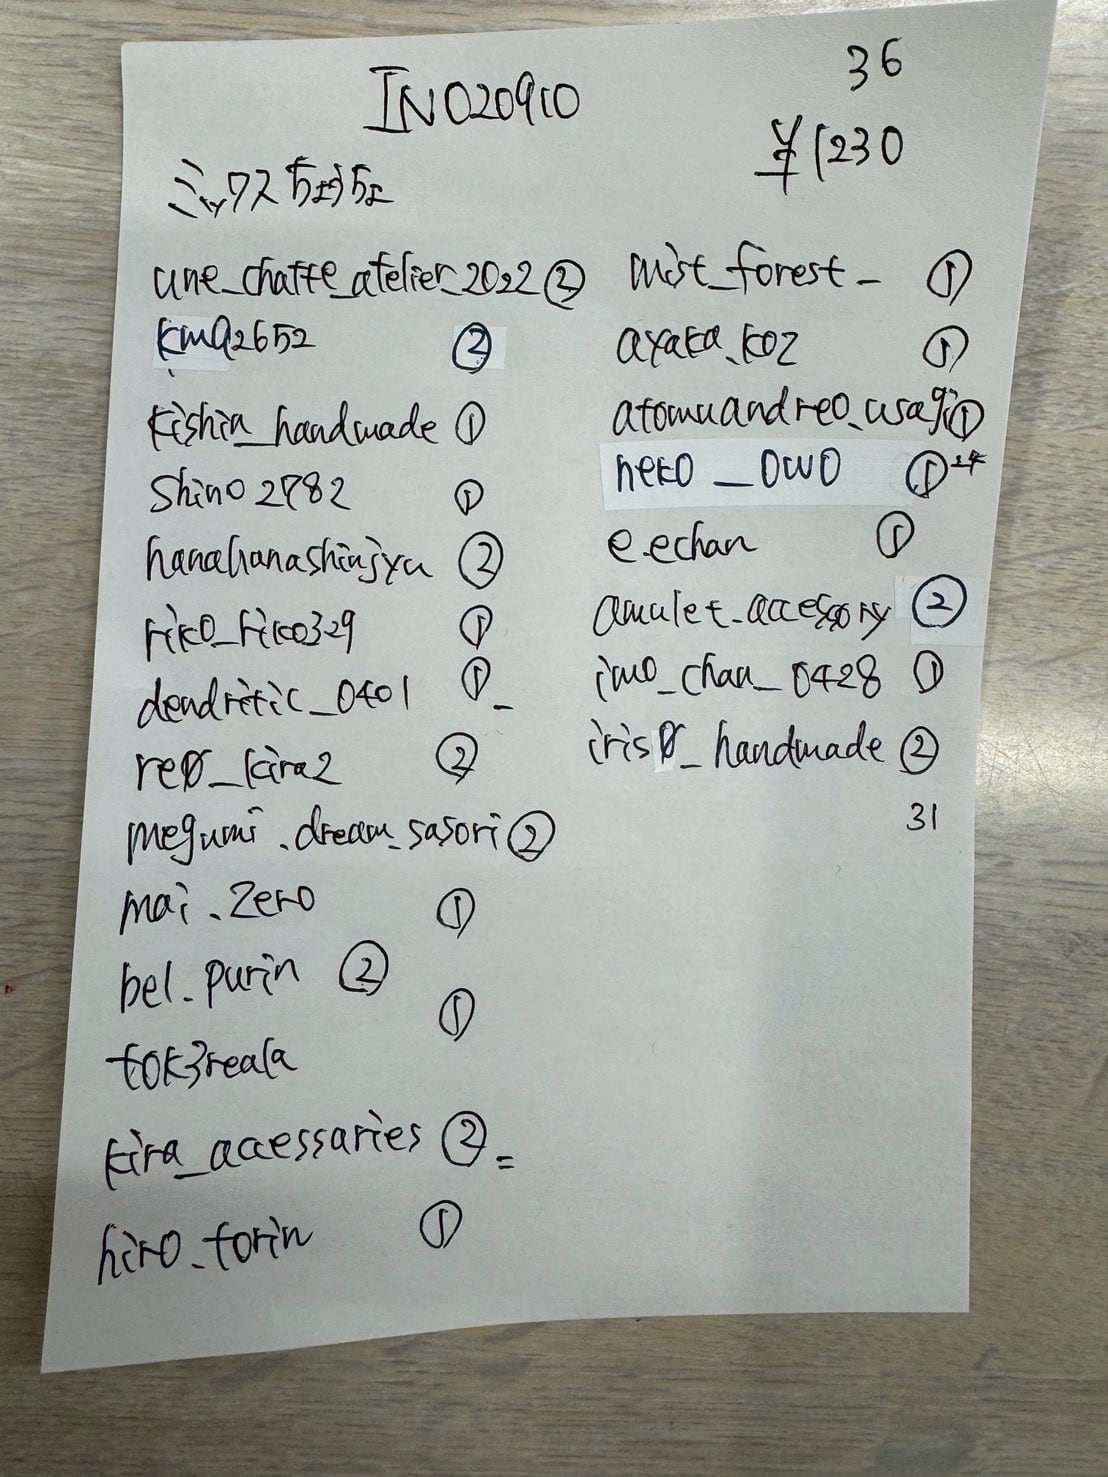 INO20910
36
¥1230
ミックスちょうちょ
une_chatte_atelier_2022 ②
kma2652 ②
kishin_handmade ①
Shino2782 ①
hanahanashinjyu ②
riko_riko329 ①
dendritic_0401 ①
re0_kira2 ②
megumi.dream_sasori ②
mai.zero ①
bel.purin ②
tok3reala ①
kira_accessaries ②
hiro.torin ①
mist_forest_ ①
ayaka.koz ①
atomuandreo_usagi ①
neko_owo ①
e.echan ①
amulet.accessory ②
imo_chan_0428 ①
iris0_handmade ②
31